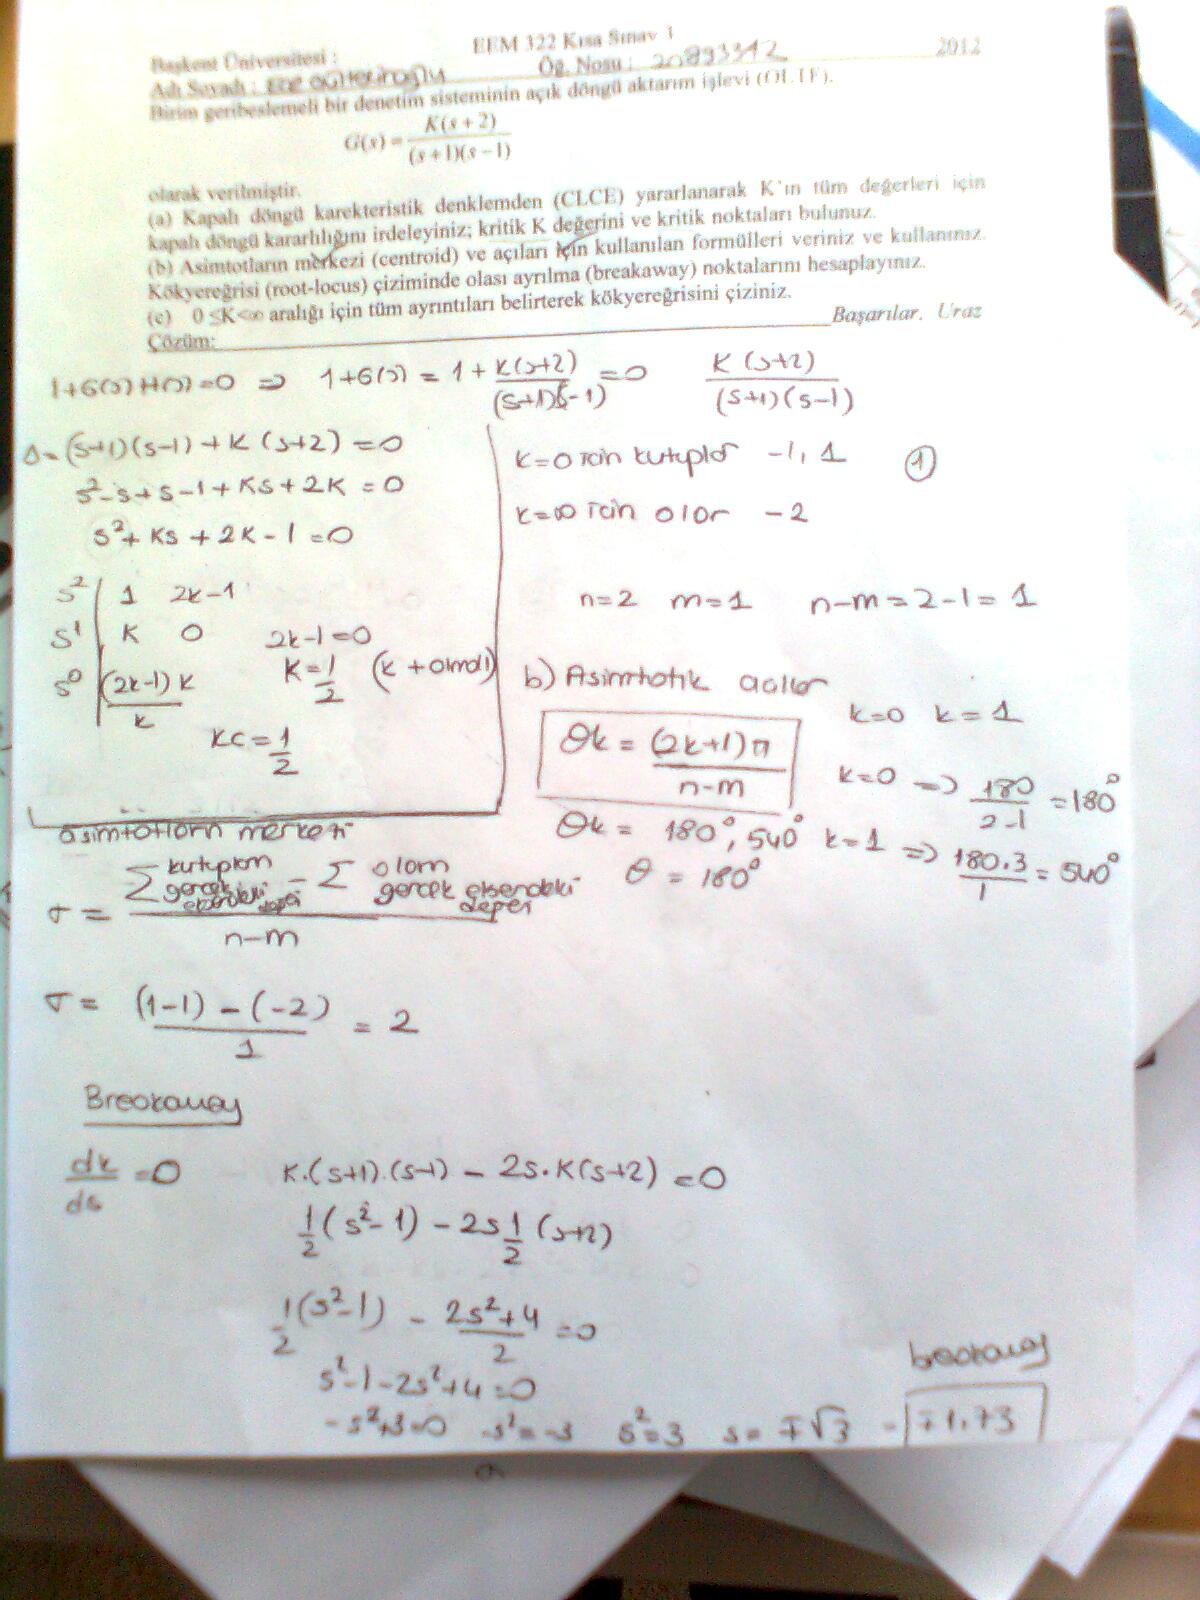 EEM 322 Kısa Sınav 3 2012
Başkent Üniversitesi :
Adı Soyadı : Öğ. Nosu : 20893342
Birim geribeslemeli bir denetim sisteminin açık döngü aktarım işlevi (OLTF).
G(s) = K(s + 2) / (s + 1)(s − 1)
olarak verilmiştir.
(a) Kapalı döngü karekteristik denklemden (CLCE) yararlanarak K'ın tüm değerleri için
kapalı döngü kararlılığını irdeleyiniz; kritik K değerini ve kritik noktaları bulunuz.
(b) Asimtotların merkezi (centroid) ve açıları için kullanılan formülleri veriniz ve kullanınız.
Kökyereğrisi (root-locus) çiziminde olası ayrılma (breakaway) noktalarını hesaplayınız.
(c) 0 ≤K<∞ aralığı için tüm ayrıntıları belirterek kökyereğrisini çiziniz.
Başarılar, Uraz
Çözüm:
1+G(s)H(s)=0 ⇒ 1+G(s) = 1 + K(s+2) / (s+1)(s-1) = 0 K(s+2) / (s+1)(s-1)
Δ = (s+1)(s-1) + K(s+2) = 0
s²-s+s-1+Ks+2K = 0
s²+Ks+2K-1=0
s² 1 2k-1
s¹ K 0 2k-1=0
s⁰ (2k-1)k / k k=1/2 (k + olmalı)
Kc = 1/2
k=0 için kutuplar -1, 1 (1)
k=∞ için olar -2
n=2 m=1 n-m=2-1=1
b) Asimtotik açılar
k=0 k=1
θk = (2k+1)π / n-m k=0 => 180 / 2-1 = 180°
θk = 180°, 540° k=1 => 180.3 / 1 = 540°
θ = 180°
asimtotların merkezi
σ = Σ kutupların gerçek eksendeki değeri - Σ oların gerçek eksendeki değeri / n-m
σ = (1-1) - (-2) / 1 = 2
Breakaway
dk/ds = 0 K.(s+1).(s-1) - 2s.K(s+2) = 0
1/2 (s²-1) - 2s 1/2 (s+2)
1/2 (s²-1) - 2s²+4 / 2 = 0
s²-1-2s²+4=0 breakaway
-s²+3=0 -s²=-3 s²=3 s= ∓√3 = ∓1.73